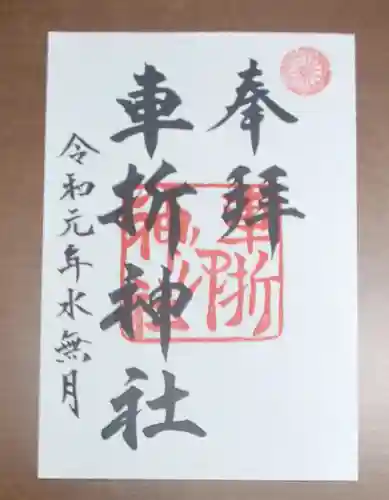 奉拝
車折神社
令和元年水無月
車折
神社